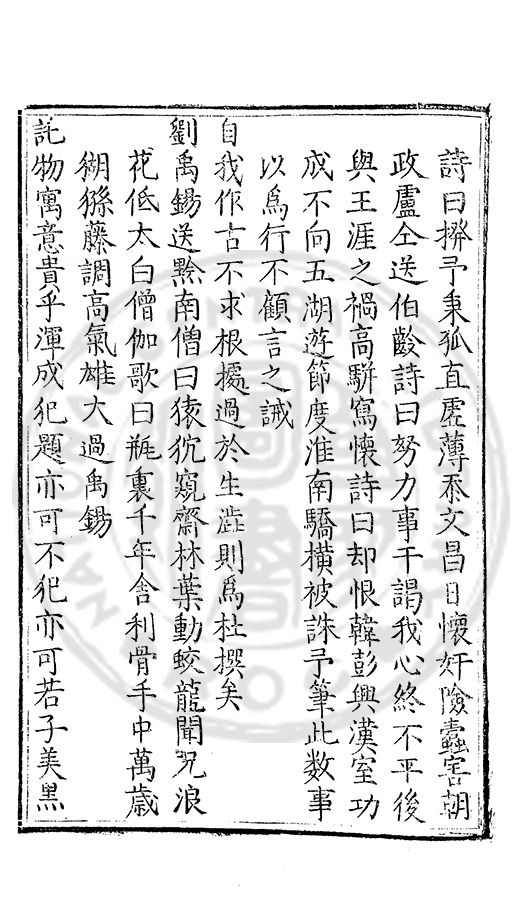 詩曰撩予秉孤直虛薄忝文昌日懷奸險蠹害朝
政盧仝送伯齡詩曰努力事干謁我心終不平後
與王涯之禍高駢寫懷詩曰却恨韓彭興漢室功
成不向五湖遊節度淮南驕橫被誅予筆此数事
以爲行不顧言之誡
自我作古不求根據過於生澁則爲杜撰矣
劉禹錫送黔南僧曰猿狖窺齋林葉動蛟龍聞咒浪
花低太白僧伽歌曰瓶裏千年舍利骨手中萬歲
猢猻藤調高氣雄大過禹錫
託物寓意貴乎渾成犯題亦可不犯亦可若子美黑